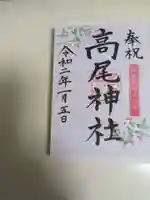 奉祝
高尾神社
令和二年一月五日